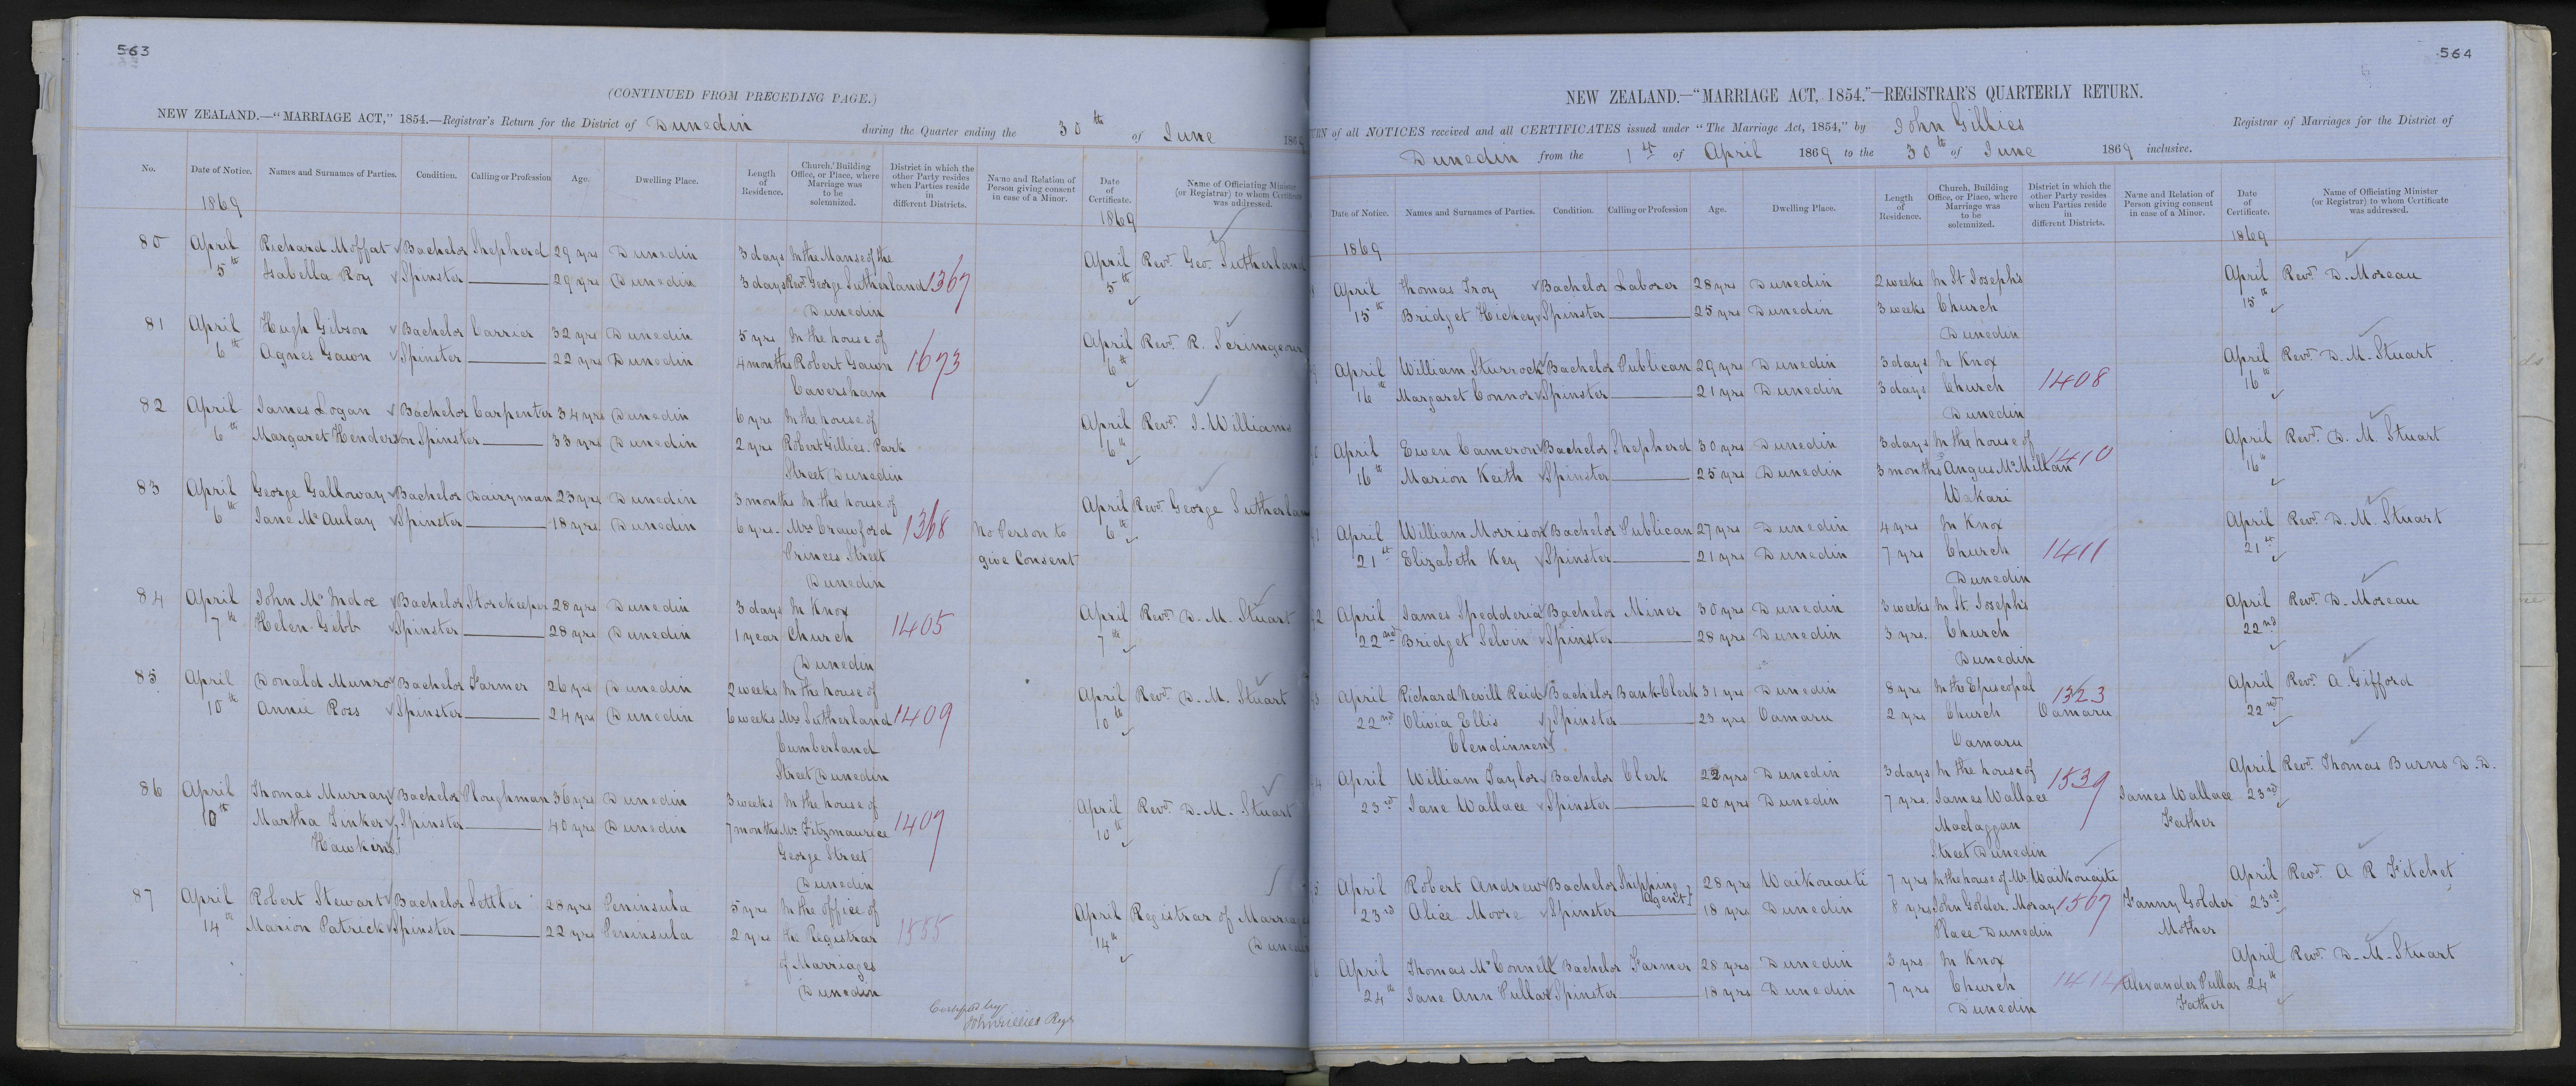 563
(CONTINUED FROM PRECEDING PAGE.)
NEW ZEALAND.—"MARRIAGE ACT," 1854.—Registrar's Return for the District of Dunedin during the Quarter ending the 30th of June 1869
No. Date of Notice. Names and Surnames of Parties. Condition. Calling or Profession Age. Dwelling Place. Length of Residence. Church, Building Office, or Place, where Marriage was to be solemnized. District in which the other Party resides when Parties reside in different Districts. Name and Relation of Person giving consent in case of a Minor. Date of Certificate. Name of Officiating Minister (or Registrar) to whom Certificate was addressed.
1869 1869
80 April Richard Moffat Bachelor Shepherd 29 yrs Dunedin 3 days In the Manse of the April Revd. Geo. Sutherland
5th Isabella Roy Spinster 29 yrs Dunedin 3 days Revd. George Sutherland 1367 5th
Dunedin
81 April Hugh Gibson Bachelor Carrier 32 yrs Dunedin 5 yrs In the house of April Revd. R. Scrimgeour
6th Agnes Gawn Spinster 22 yrs Dunedin 4 months Robert Gawn 1673 6th
Caversham
82 April James Logan Bachelor Carpenter 34 yrs Dunedin 6 yrs In the house of April Revd. J. Williams
6th Margaret Henderson Spinster 33 yrs Dunedin 2 yrs Robert Gillies. Park 6th
Street Dunedin
83 April George Galloway Bachelor Dairyman 23 yrs Dunedin 3 months In the house of April Revd. George Sutherland
6th Jane McAulay Spinster 18 yrs Dunedin 6 yrs. Mrs Crawford 1368 No Person to 6th
Princes Street give Consent
Dunedin
84 April John McIndoe Bachelor Storekeeper 28 yrs Dunedin 3 days In Knox April Revd. D. M. Stuart
7th Helen Gebb Spinster 28 yrs Dunedin 1 year Church 1405 7th
Dunedin
85 April Donald Munro Bachelor Farmer 26 yrs Dunedin 2 weeks In the house of April Revd. D. M. Stuart
10th Annie Ross Spinster 24 yrs Dunedin 6 weeks Mrs Sutherland 1409 10th
Cumberland
Street Dunedin
86 April Thomas Murray Bachelor Ploughman 36 yrs Dunedin 3 weeks In the house of April Revd. D. M. Stuart
10th Martha Tinker Spinster 40 yrs Dunedin 7 months Mr. Fitzmaurice 1407 10th
Hawkins George Street
Dunedin
87 April Robert Stewart Bachelor Settler 28 yrs Peninsula 5 yrs In the office of April Registrar of Marriages
14th Marion Patrick Spinster 22 yrs Peninsula 2 yrs the Registrar 1555 14th Dunedin
of Marriages
Dunedin
Certified by
John Gillies Regr
564
NEW ZEALAND.—"MARRIAGE ACT, 1854."—REGISTRAR'S QUARTERLY RETURN.
of all NOTICES received and all CERTIFICATES issued under "The Marriage Act, 1854," by John Gillies Registrar of Marriages for the District of
Dunedin from the 1st of April 1869 to the 30th of June 1869 inclusive.
Date of Notice. Names and Surnames of Parties. Condition. Calling or Profession Age. Dwelling Place. Length of Residence. Church, Building Office, or Place, where Marriage was to be solemnized. District in which the other Party resides when Parties reside in different Districts. Name and Relation of Person giving consent in case of a Minor. Date of Certificate. Name of Officiating Minister (or Registrar) to whom Certificate was addressed.
1869 1869
April Thomas Troy Bachelor Laborer 28 yrs Dunedin 2 weeks In St Joseph's April Revd. D. Moreau
15th Bridget Hickey Spinster 25 yrs Dunedin 3 weeks Church 15th
Dunedin
April William Sturrock Bachelor Publican 29 yrs Dunedin 3 days In Knox April Revd. D. M. Stuart
16th Margaret Connor Spinster 21 yrs Dunedin 3 days Church 1408 16th
Dunedin
April Ewen Cameron Bachelor Shepherd 30 yrs Dunedin 3 days In the house of April Revd. D. M. Stuart
16th Marion Keith Spinster 25 yrs Dunedin 3 months Angus McMillan 1410 16th
Wakari
April William Morrison Bachelor Publican 27 yrs Dunedin 4 yrs In Knox April Revd. D. M. Stuart
21st Elizabeth Key Spinster 21 yrs Dunedin 7 yrs Church 1411 21st
Dunedin
April James Bachelor Miner 30 yrs Dunedin 3 weeks In St. Joseph's April Revd. D. Moreau
22nd Bridget Selvin Spinster 28 yrs Dunedin 3 yrs. Church 22nd
Dunedin
April Richard Nevill Reid Bachelor Bank Clerk 31 yrs Dunedin 8 yrs In the Episcopal 1323 April Revd. A. Gifford
22nd Olivia Ellis Spinster 23 yrs Oamaru 2 yrs Church Oamaru 22nd
Clendinnen Oamaru
April William Taylor Bachelor Clerk 22 yrs Dunedin 3 days In the house of 1539 April Revd. Thomas Burns D.D.
23rd Jane Wallace Spinster 20 yrs Dunedin 7 yrs. James Wallace James Wallace 23rd
Maclaggan Father
Street Dunedin
April Robert Andrew Bachelor Shipping Agent 28 yrs Waikouaiti 7 yrs In the house of Mr Waikouaiti April Revd. A R Fitchet
23rd Alice Moore Spinster 18 yrs Dunedin 8 yrs John Golder. Moray 1507 Fanny Golder 23rd
Place Dunedin Mother
April Thomas McConnell Bachelor Farmer 28 yrs Dunedin 3 yrs In Knox April Revd. D. M. Stuart
24th Jane Ann Pullar Spinster 18 yrs Dunedin 7 yrs Church 1414 Alexander Pullar 24th
Dunedin Father